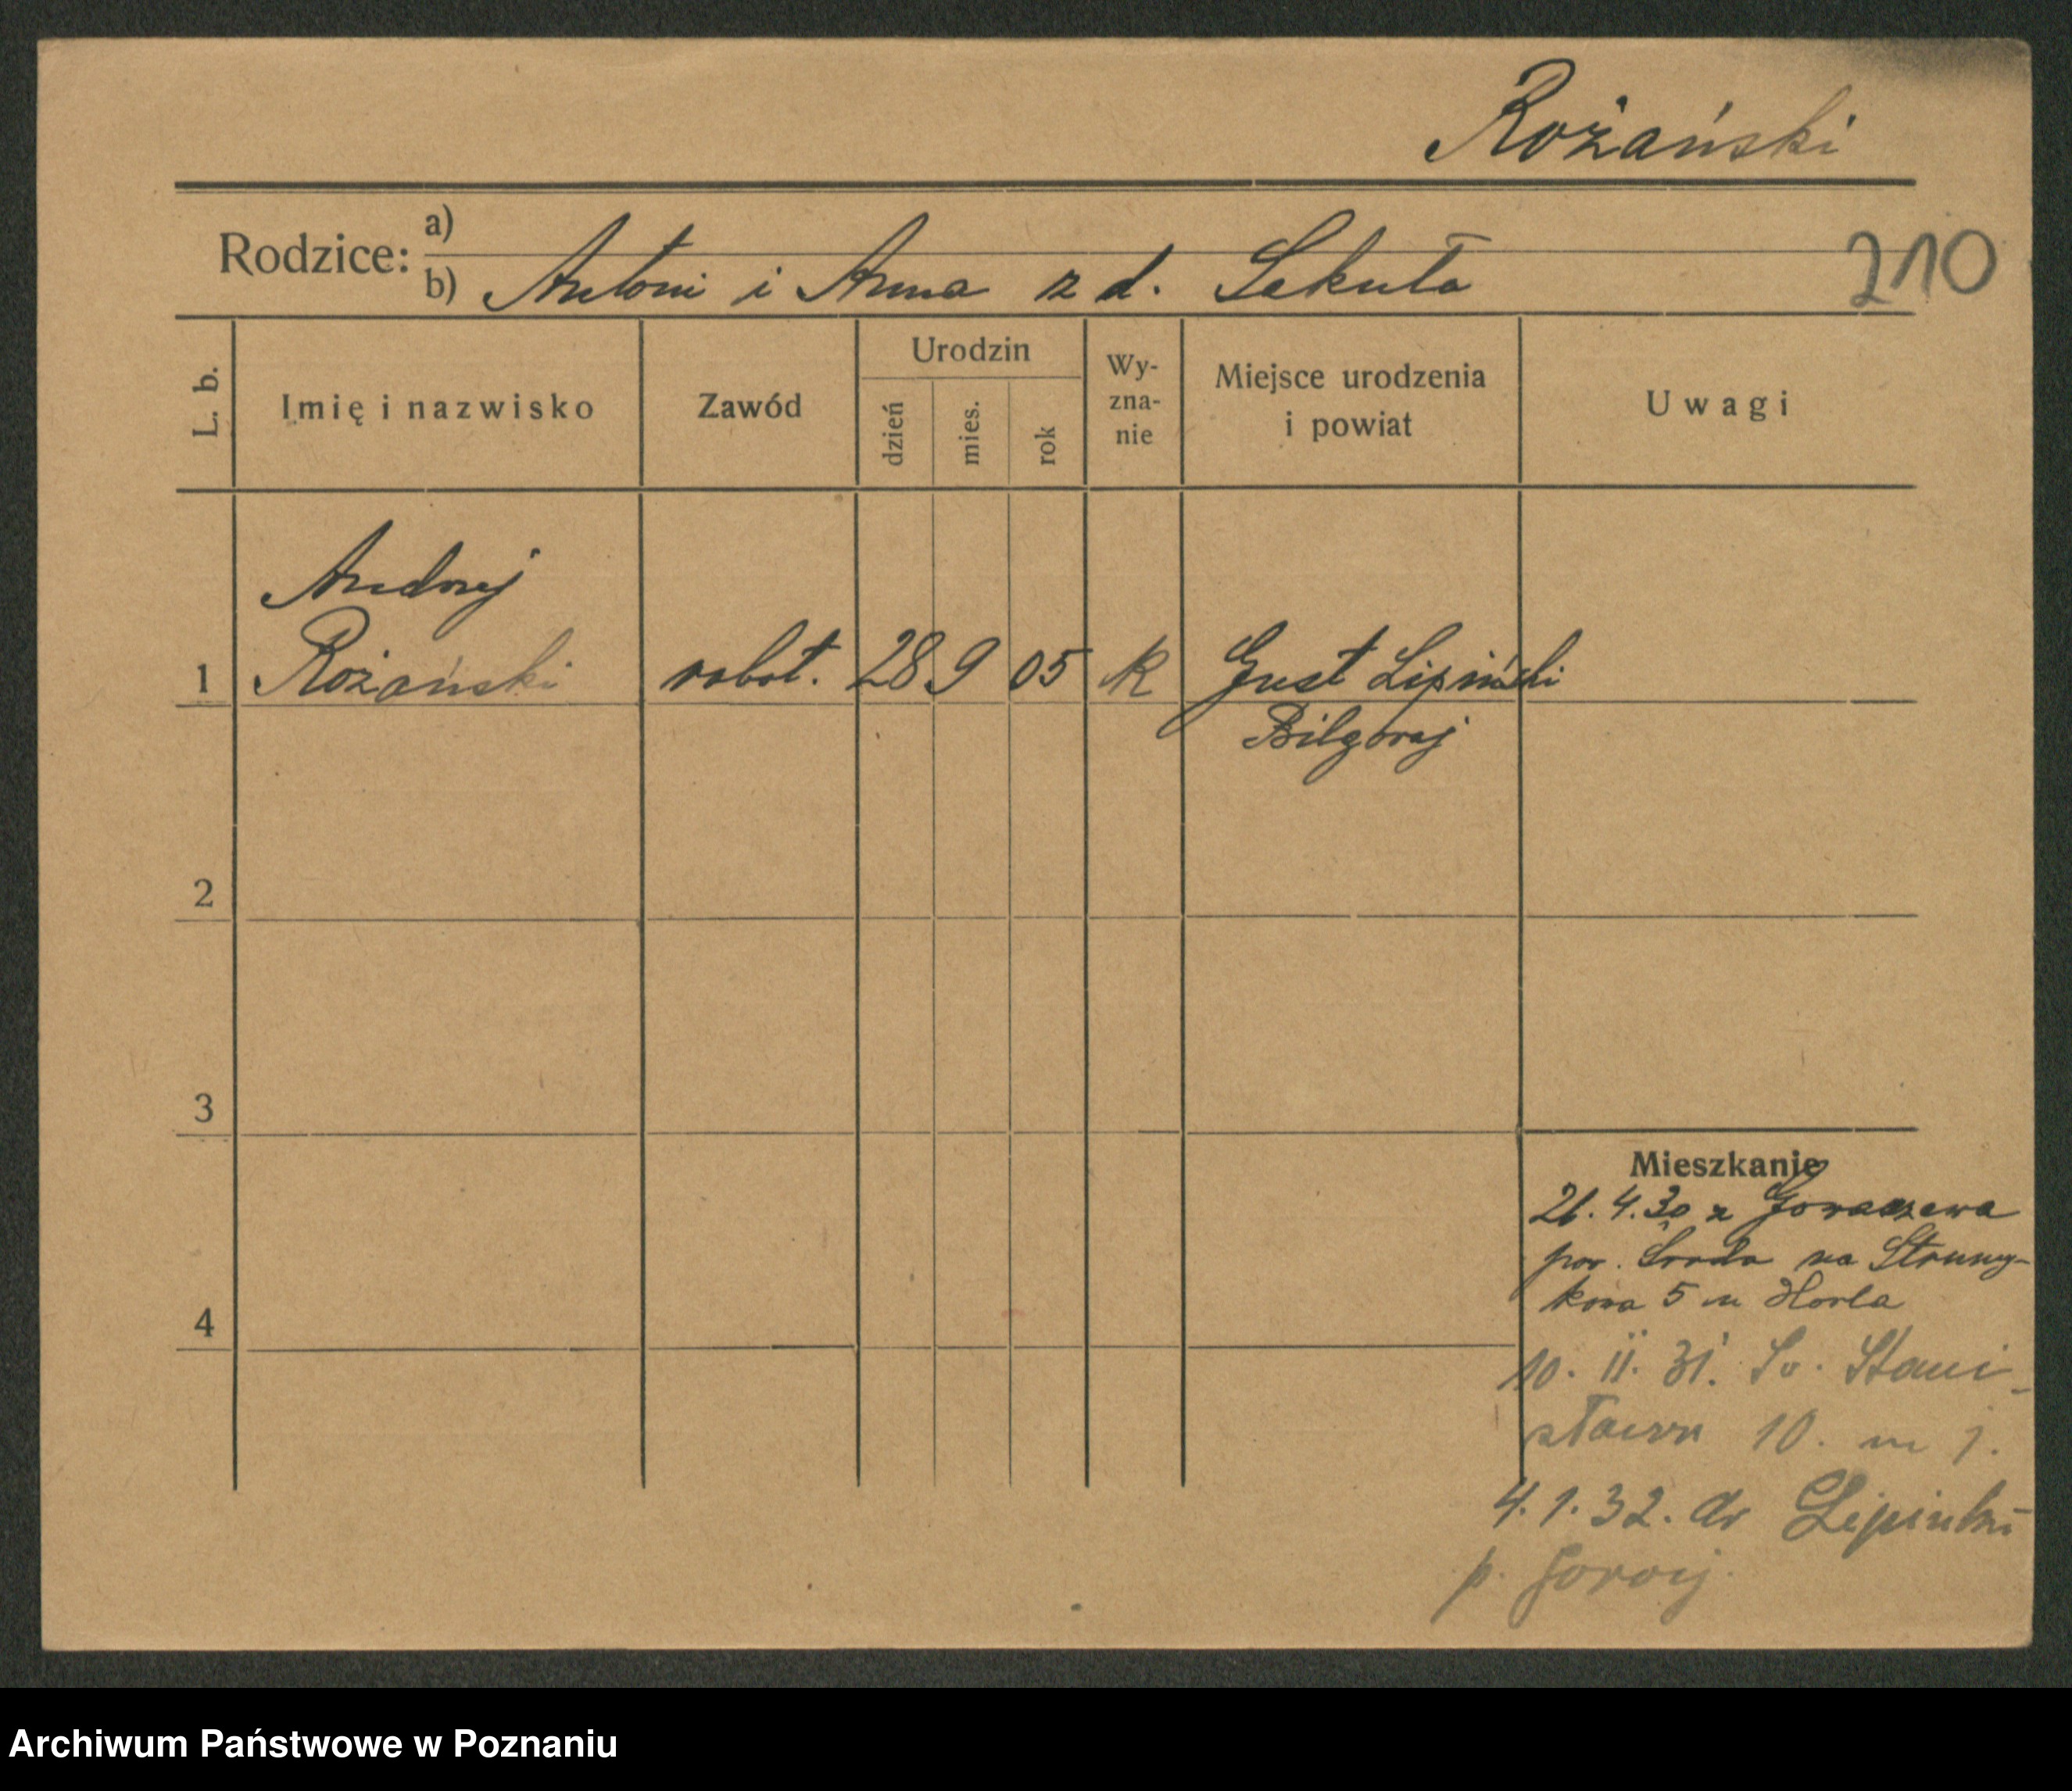 Rożański
Rodzice: a)
b) Antoni i Anna z d. Sekuła
210
L. b.
Imię i nazwisko
Zawód
Urodzin
dzień
mies.
rok
Wy-
zna-
nie
Miejsce urodzenia
i powiat
Uwagi
Andrzej
1 Rożański robot. 28 9 05 k Gust Lipiński
Bilgoraj
2
3
4
Mieszkanie
21. 4. 30 z
pow. Środa na Strumy-
kowa 5 m
10. II. 31. Św. Stani-
sława 10. m 1.
4. 1. 32. do Lipinki
p. Goraj.
Archiwum Państwowe w Poznaniu